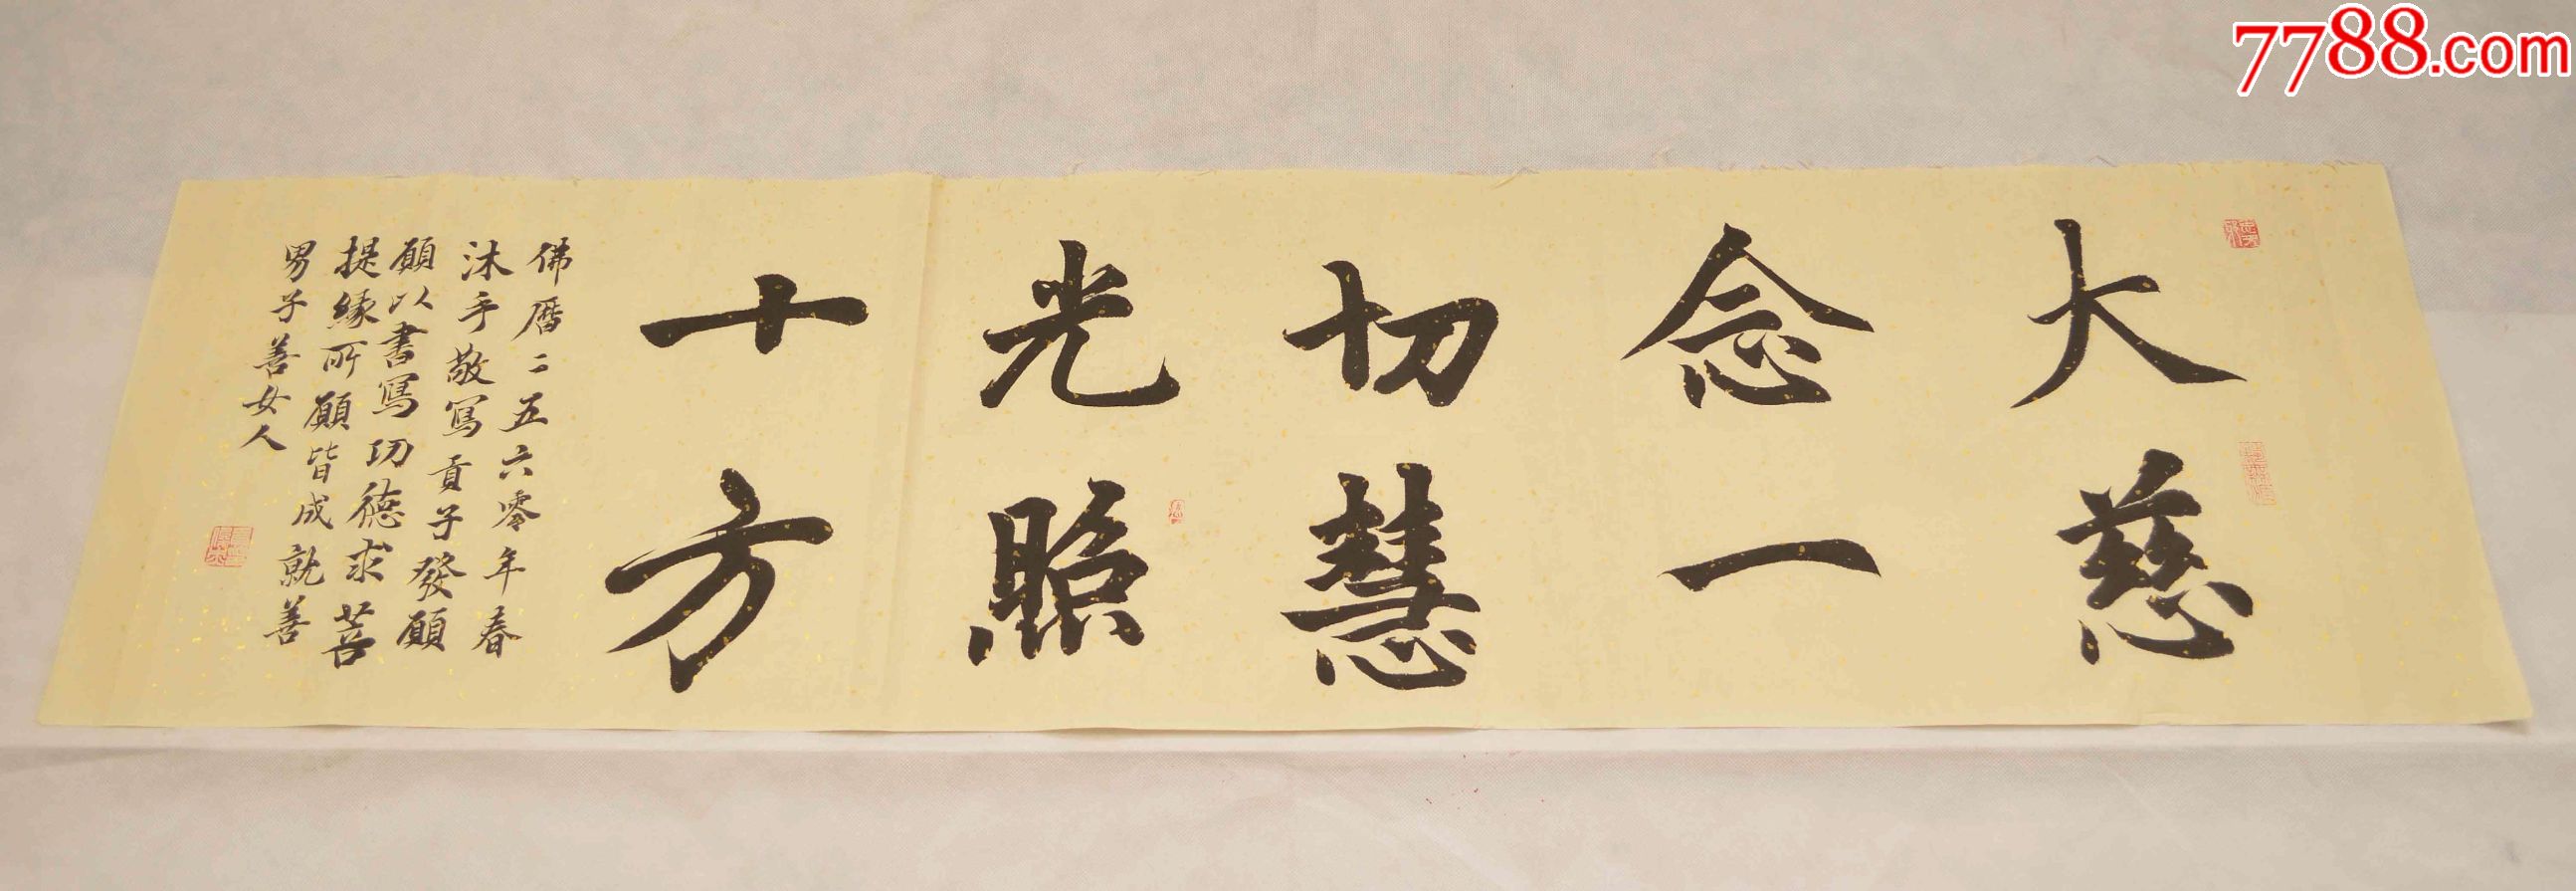 大慈
念一
切慧
光照
十方
佛曆二五六零年春
沐手敬寫貢子發願
願以書寫功德求菩
提緣所願皆成就善
男子善女人
7788.com